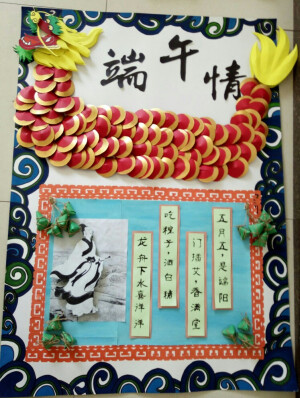 端午情
五月五，是端阳
门插艾，香满堂
吃粽子，洒白糖
龙舟下水喜洋洋